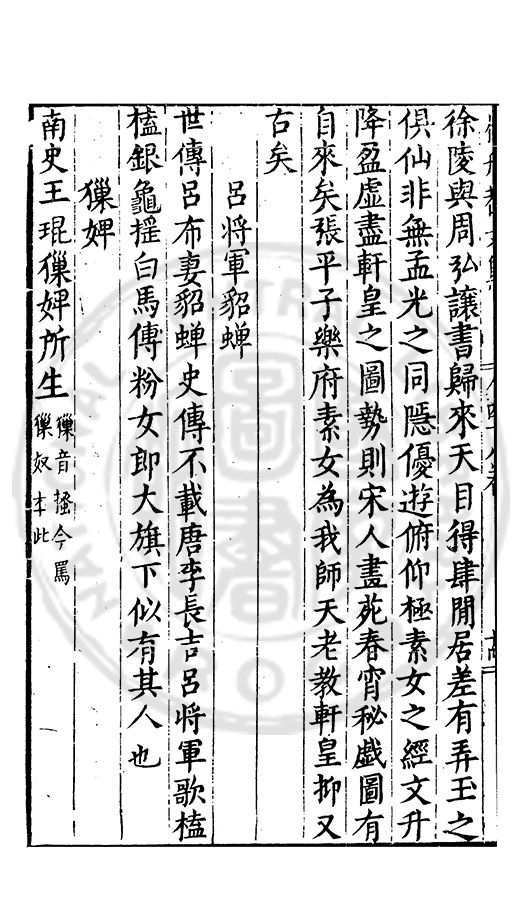 徐陵與周弘讓書歸來天目得肆閒居差有弄玉之
俱仙非無孟光之同隱優遊俯仰極素女之經文升
降盈虛盡軒皇之圖勢則宋人畫苑春宵秘戲圖有
自來矣張平子樂府素女為我師天老教軒皇抑又
古矣
呂將軍貂蟬
世傳呂布妻貂蟬史傳不載唐李長吉呂將軍歌榼
榼銀龜搖白馬傅粉女郎大旗下似有其人也
獠婢
南史王琨獠婢所生
獠音搔今罵
獠奴本此